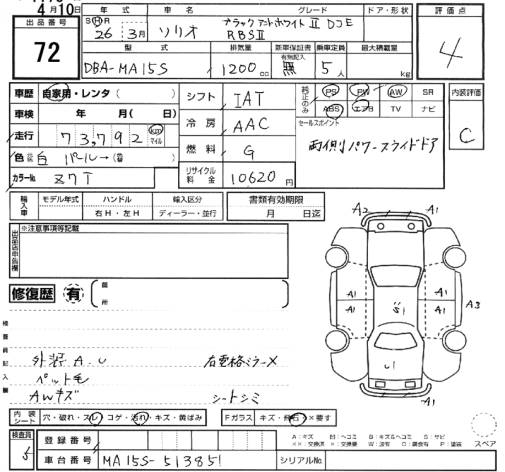 4月10日
出品番号
72
年式 車名 グレード ドア・形状
S H R
26 3月
ソリオ
ブラック アンド ホワイトⅡ DCE
RBSⅡ
型式 排気量 新車保証書 乗車定員 最大積載量
有無記入
DBA-MA15S 1200cc 無 5人 kg
評価点
4
車歴 自家用・レンタ( )
車検 年 月( 日)
走行 73,792 km マイル
色 白 パール→(替 )
カラーNo. Z7T
シフト IAT
冷房 AAC
燃料 G
リサイクル料金 10620円
純正のみ
PS PW AW SR
ABS エアB TV ナビ
セールスポイント
両側パワースライドドア
内装評価
C
輸入車
モデル年式 ハンドル 輸入区分
右H・左H ディーラー・並行
書類有効期限
月 日迄
※注意事項等記載
修復歴 有
箇所
検査員記入欄
外装A.U 右電格ミラー×
ペット毛
AWキズ シートシミ
A2 A1
A1
A1 A1 S1 A1 A3
U1
A1 A1
内装シート
穴・破れ・スレ コゲ・汚れ・キズ・黄ばみ
Fガラス キズ・飛石 ×要す
スペア
検査員
登録番号
車台番号 MA15S-513851
シリアルNo.